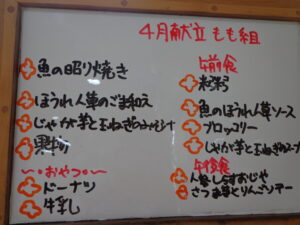 4月献立 もも組
魚の照り焼き
ほうれん草のごま和え
じゃが芋と玉ねぎのみそ汁
果物
おやつ
ドーナツ
牛乳
午前食
粒粥
魚のほうれん草ソース
ブロッコリー
じゃが芋と玉ねぎのスープ
午後食
人参しらすおじや
さつま芋とりんごソテー